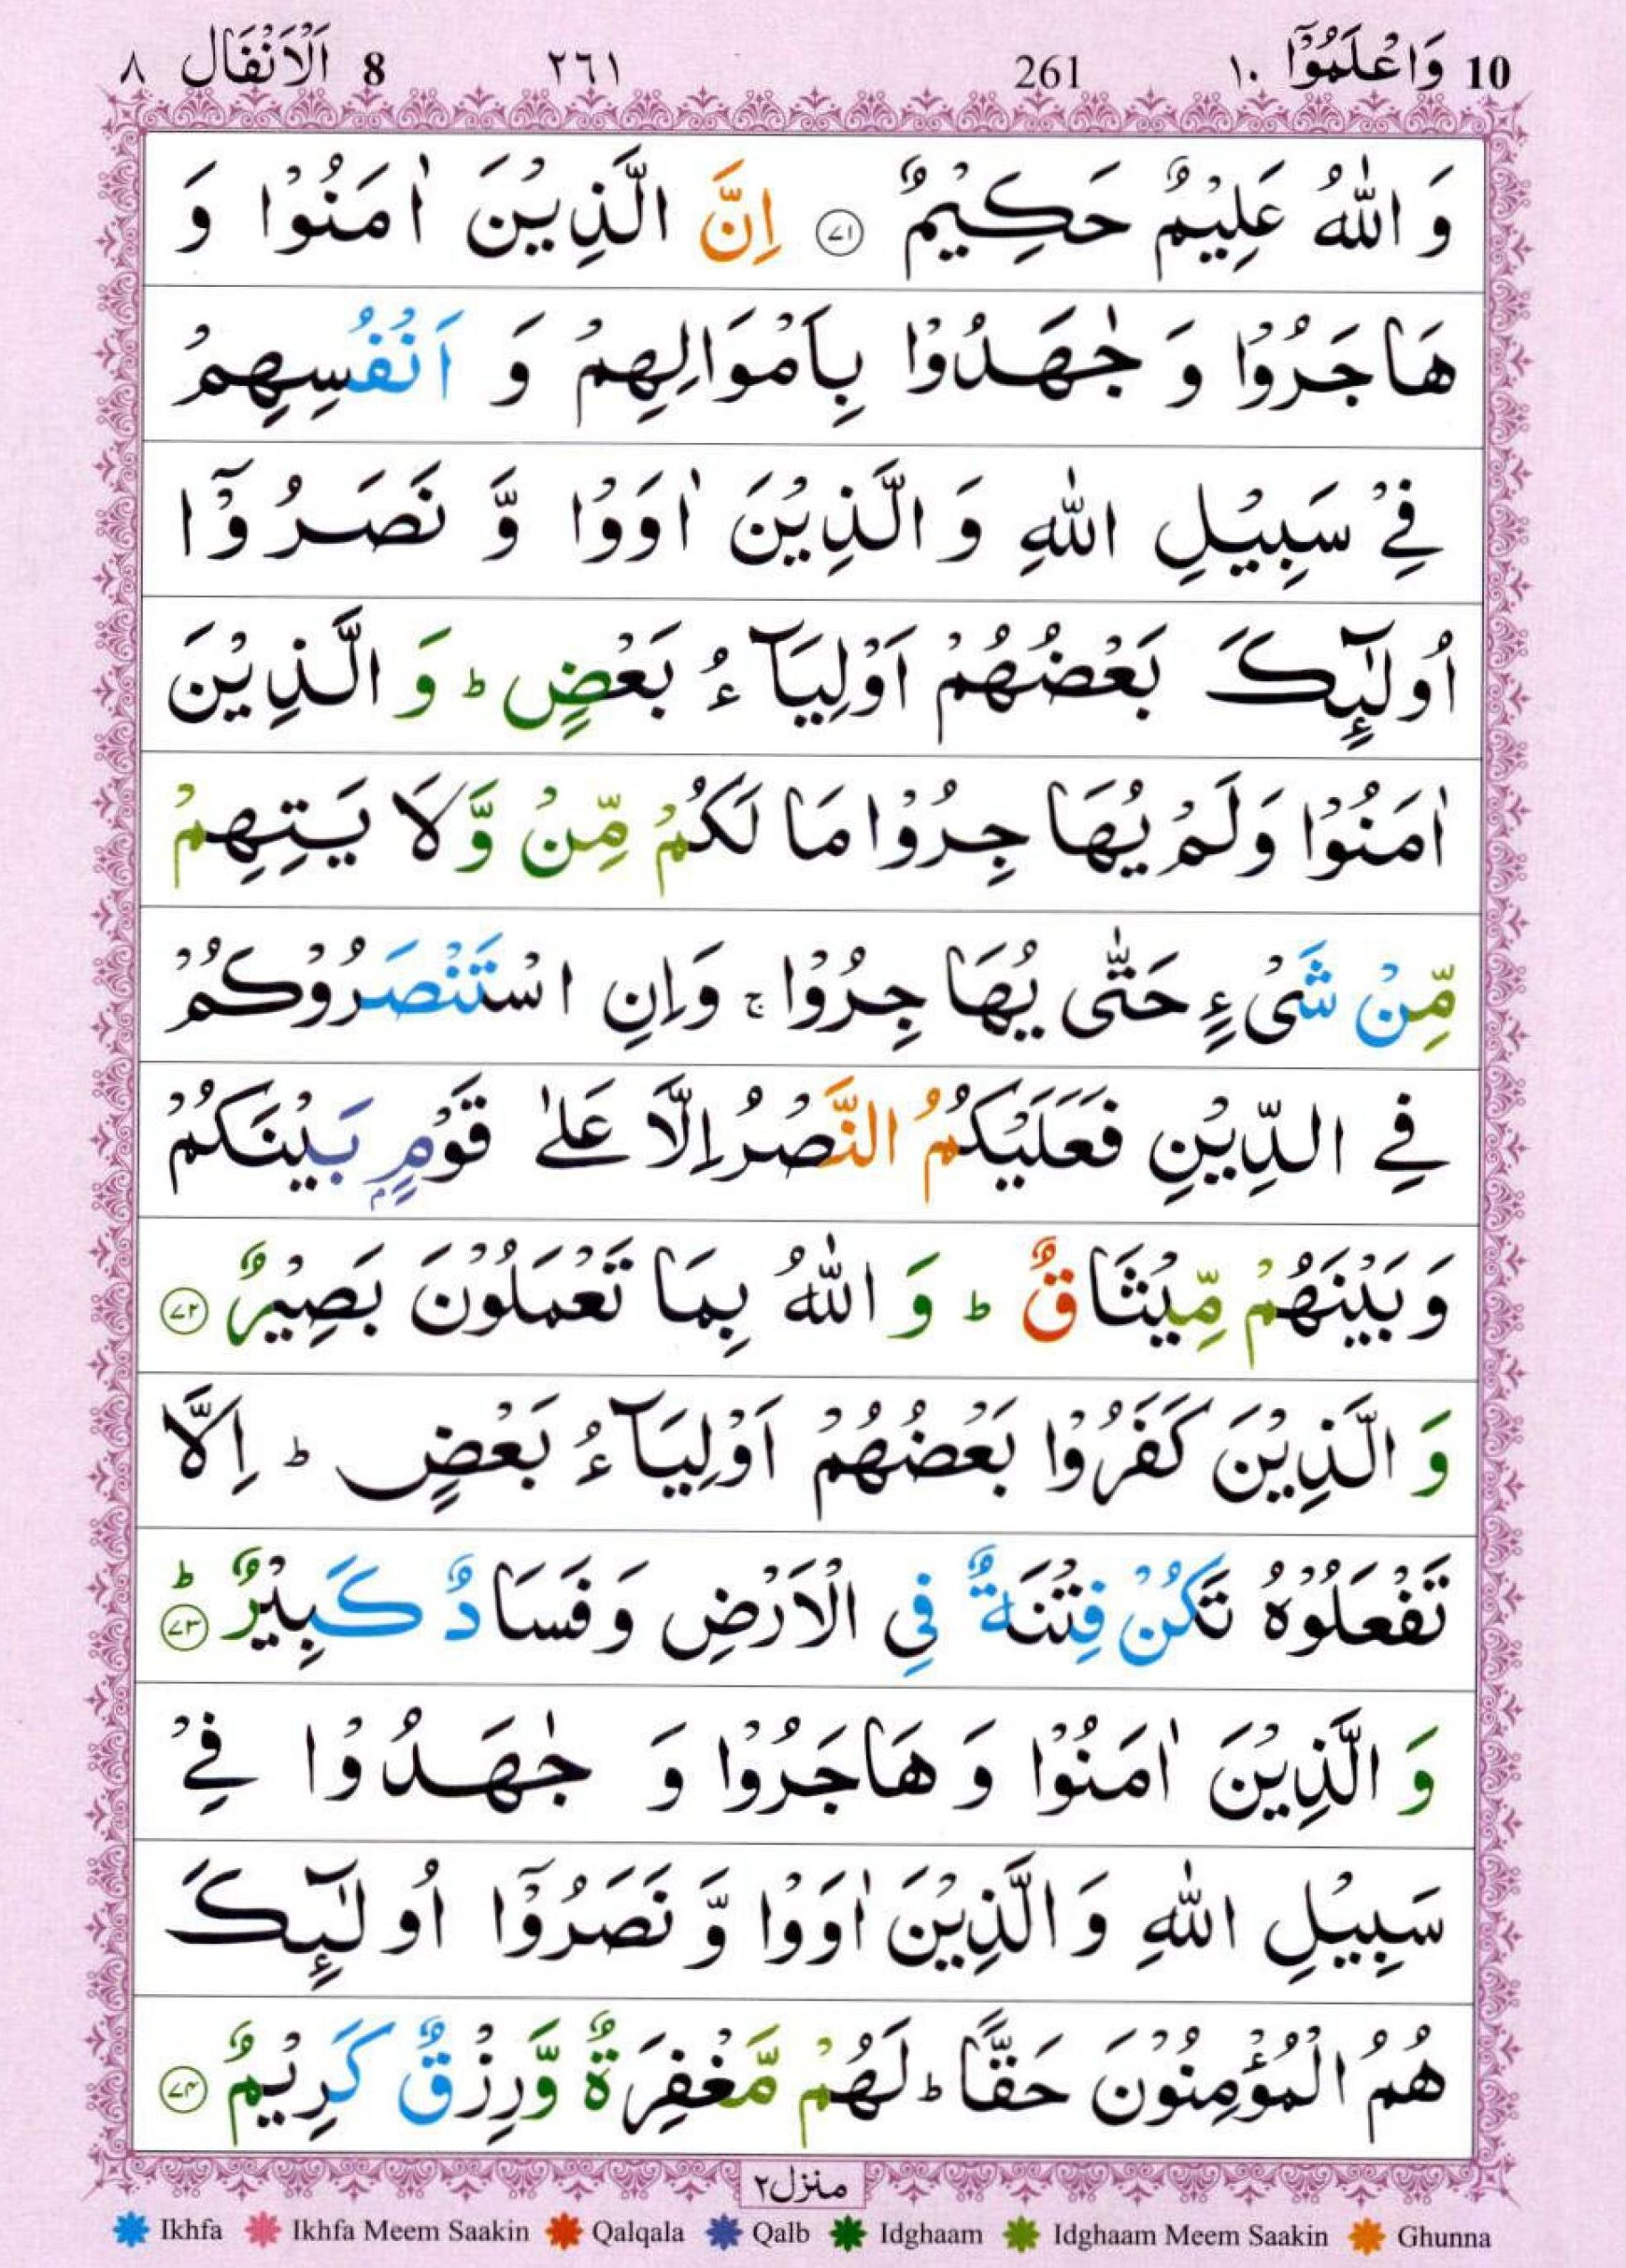 10 وَاعْلَمُوْٓا ١٠ 261 ٢٦١ 8 اَلْاَنْفَال ٨
وَ اللّٰهُ عَلِيْمٌ حَكِيْمٌ ﴿٧١﴾ اِنَّ الَّذِيْنَ اٰمَنُوْا وَ
هَاجَرُوْا وَ جٰهَدُوْا بِاَمْوَالِهِمْ وَ اَنْفُسِهِمْ
فِيْ سَبِيْلِ اللّٰهِ وَ الَّذِيْنَ اٰوَوْا وَّ نَصَرُوْٓا
اُولٰٓئِكَ بَعْضُهُمْ اَوْلِيَآءُ بَعْضٍ ؕ وَ الَّذِيْنَ
اٰمَنُوْا وَلَمْ يُهَاجِرُوْا مَا لَكُمْ مِّنْ وَّلَا يَتِهِمْ
مِّنْ شَىْءٍ حَتّٰى يُهَاجِرُوْا ۚ وَاِنِ اسْتَنْصَرُوْكُمْ
فِي الدِّيْنِ فَعَلَيْكُمُ النَّصْرُ اِلَّا عَلٰى قَوْمٍۭ بَيْنَكُمْ
وَبَيْنَهُمْ مِّيْثَاقٌ ؕ وَ اللّٰهُ بِمَا تَعْمَلُوْنَ بَصِيْرٌ ﴿٧٢﴾
وَ الَّذِيْنَ كَفَرُوْا بَعْضُهُمْ اَوْلِيَآءُ بَعْضٍ ؕ اِلَّا
تَفْعَلُوْهُ تَكُنْ فِتْنَةٌ فِي الْاَرْضِ وَ فَسَادٌ كَبِيْرٌ ؕ ﴿٧٣﴾
وَ الَّذِيْنَ اٰمَنُوْا وَ هَاجَرُوْا وَ جٰهَدُوْا فِيْ
سَبِيْلِ اللّٰهِ وَ الَّذِيْنَ اٰوَوْا وَّ نَصَرُوْٓا اُولٰٓئِكَ
هُمُ الْمُؤْمِنُوْنَ حَقًّا ؕ لَهُمْ مَّغْفِرَةٌ وَّرِزْقٌ كَرِيْمٌ ﴿٧٤﴾
منزل٢
Ikhfa Ikhfa Meem Saakin Qalqala Qalb Idghaam Idghaam Meem Saakin Ghunna